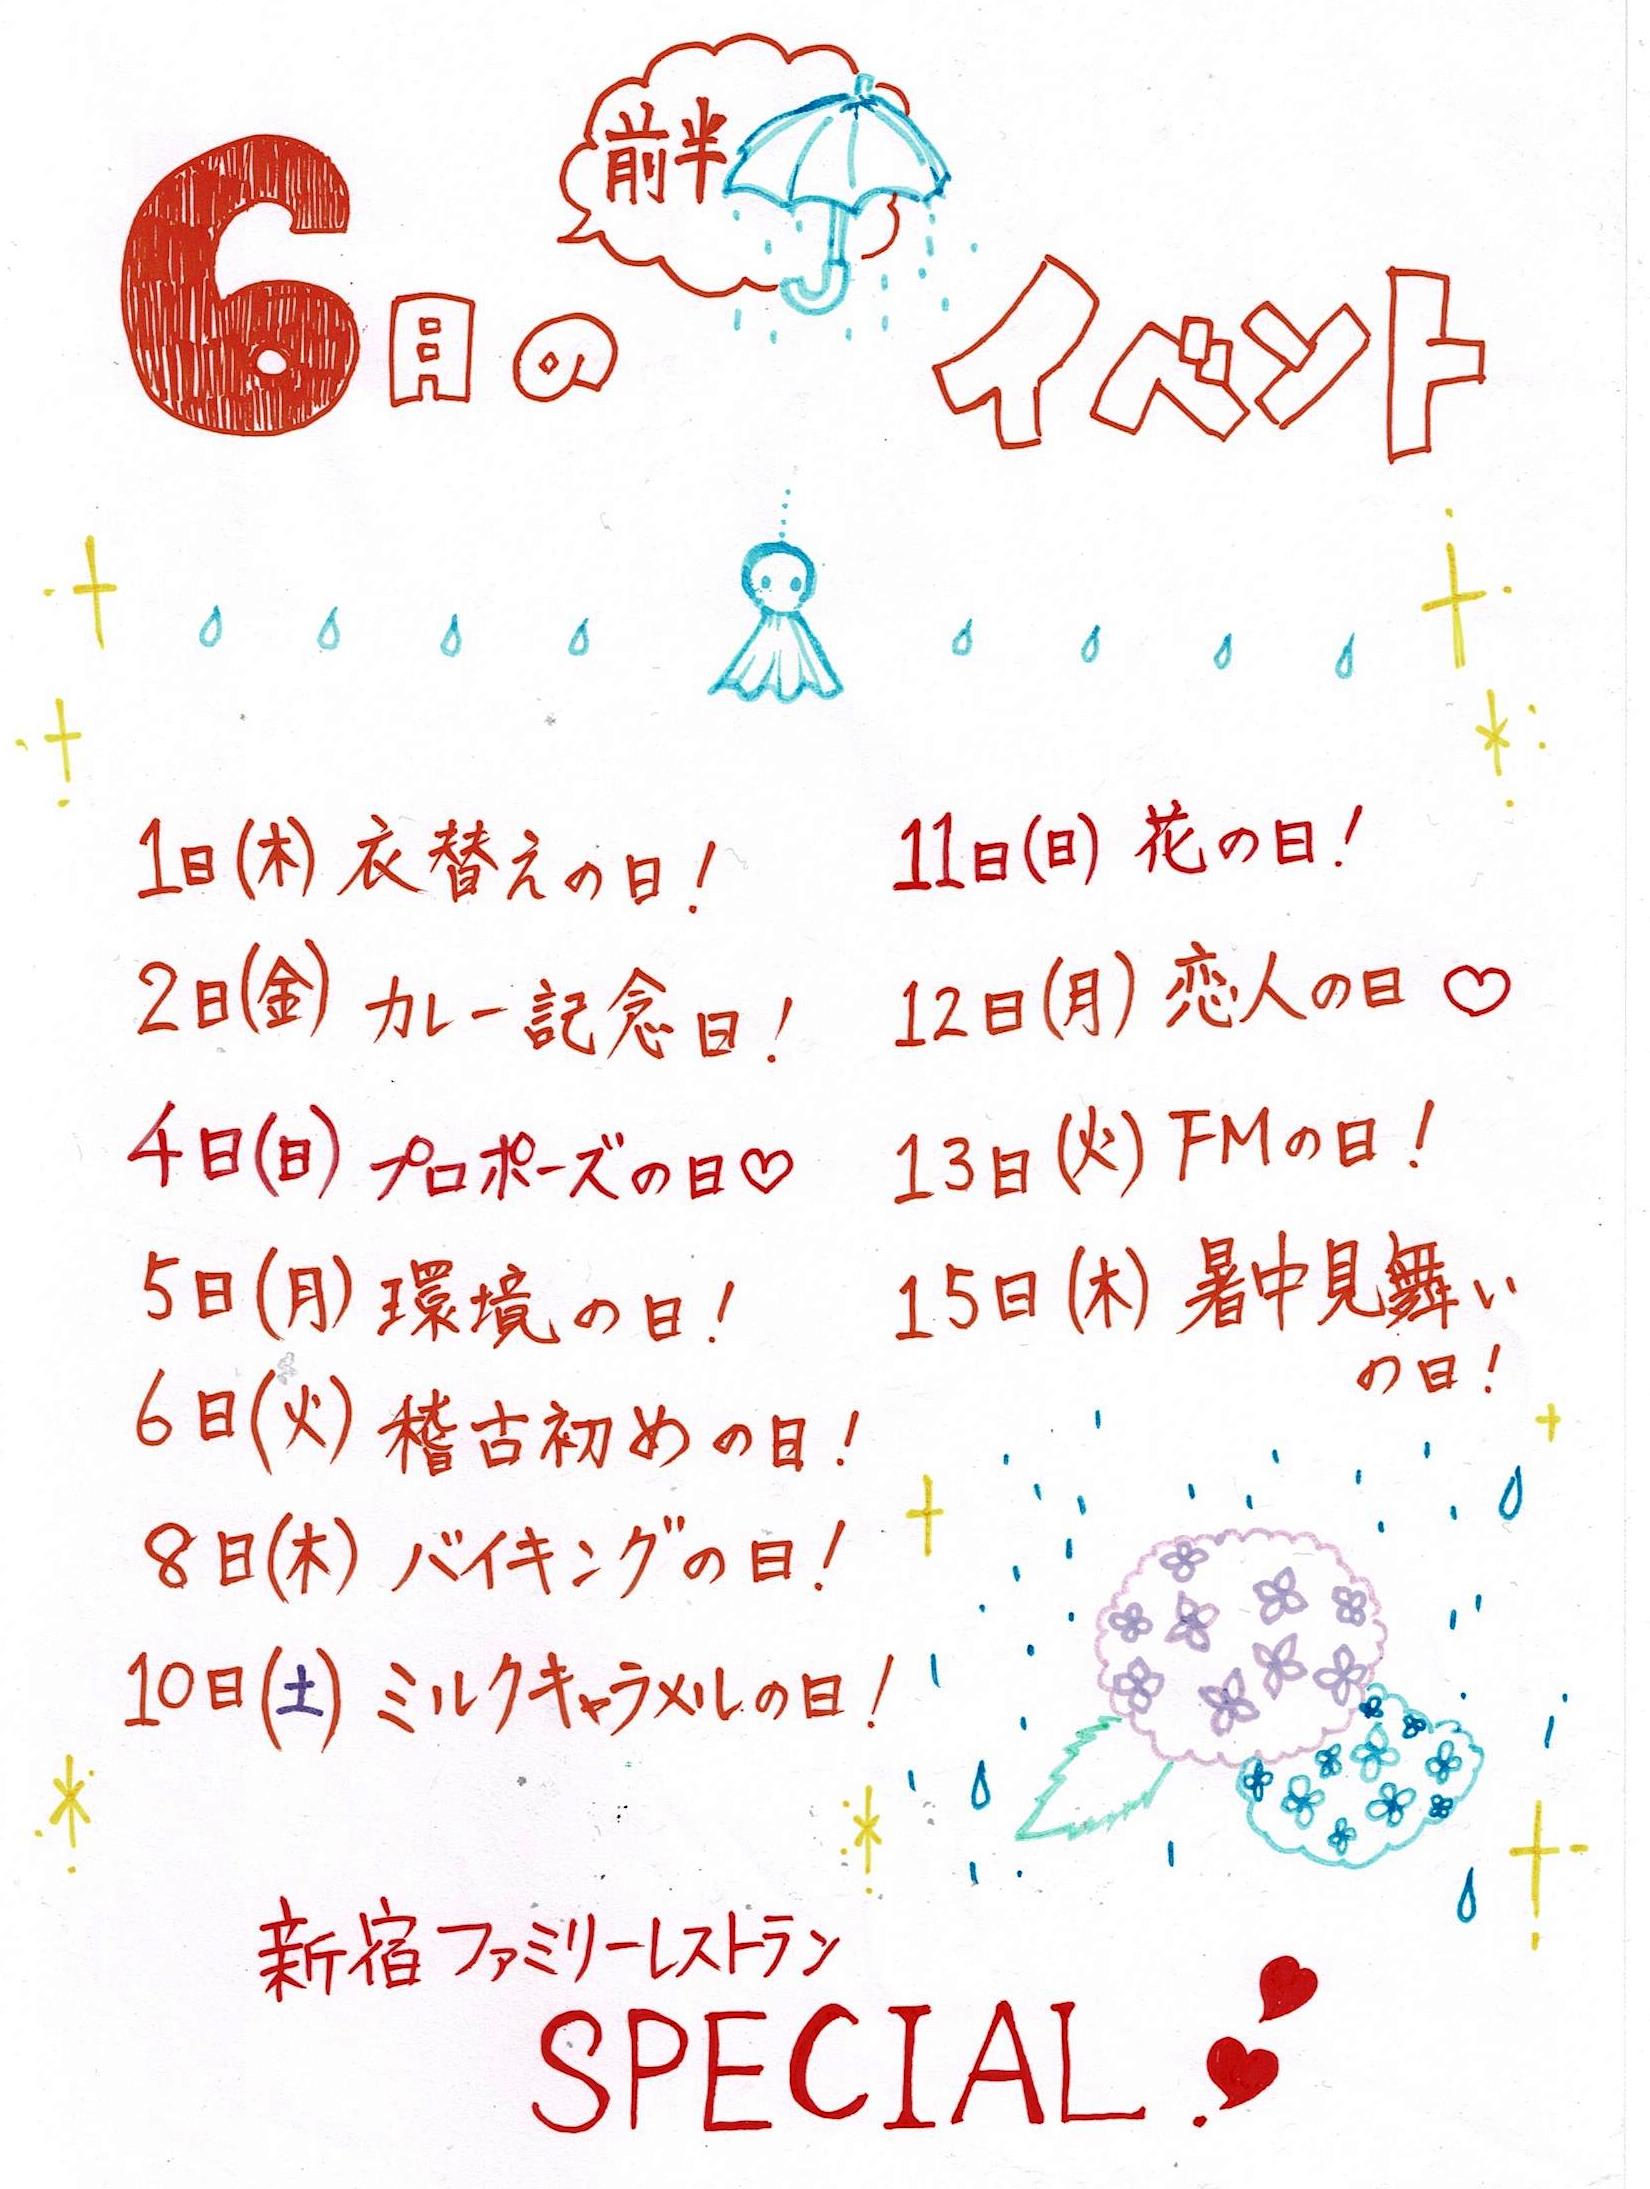 前半
6月の イベント
1日(木) 衣替えの日!
2日(金) カレー記念日!
4日(日) プロポーズの日♡
5日(月) 環境の日!
6日(火) 稽古初めの日!
8日(木) バイキングの日!
10日(土) ミルクキャラメルの日!
11日(日) 花の日!
12日(月) 恋人の日♡
13日(火) FMの日!
15日(木) 暑中見舞い
の日!
新宿ファミリーレストラン
SPECIAL